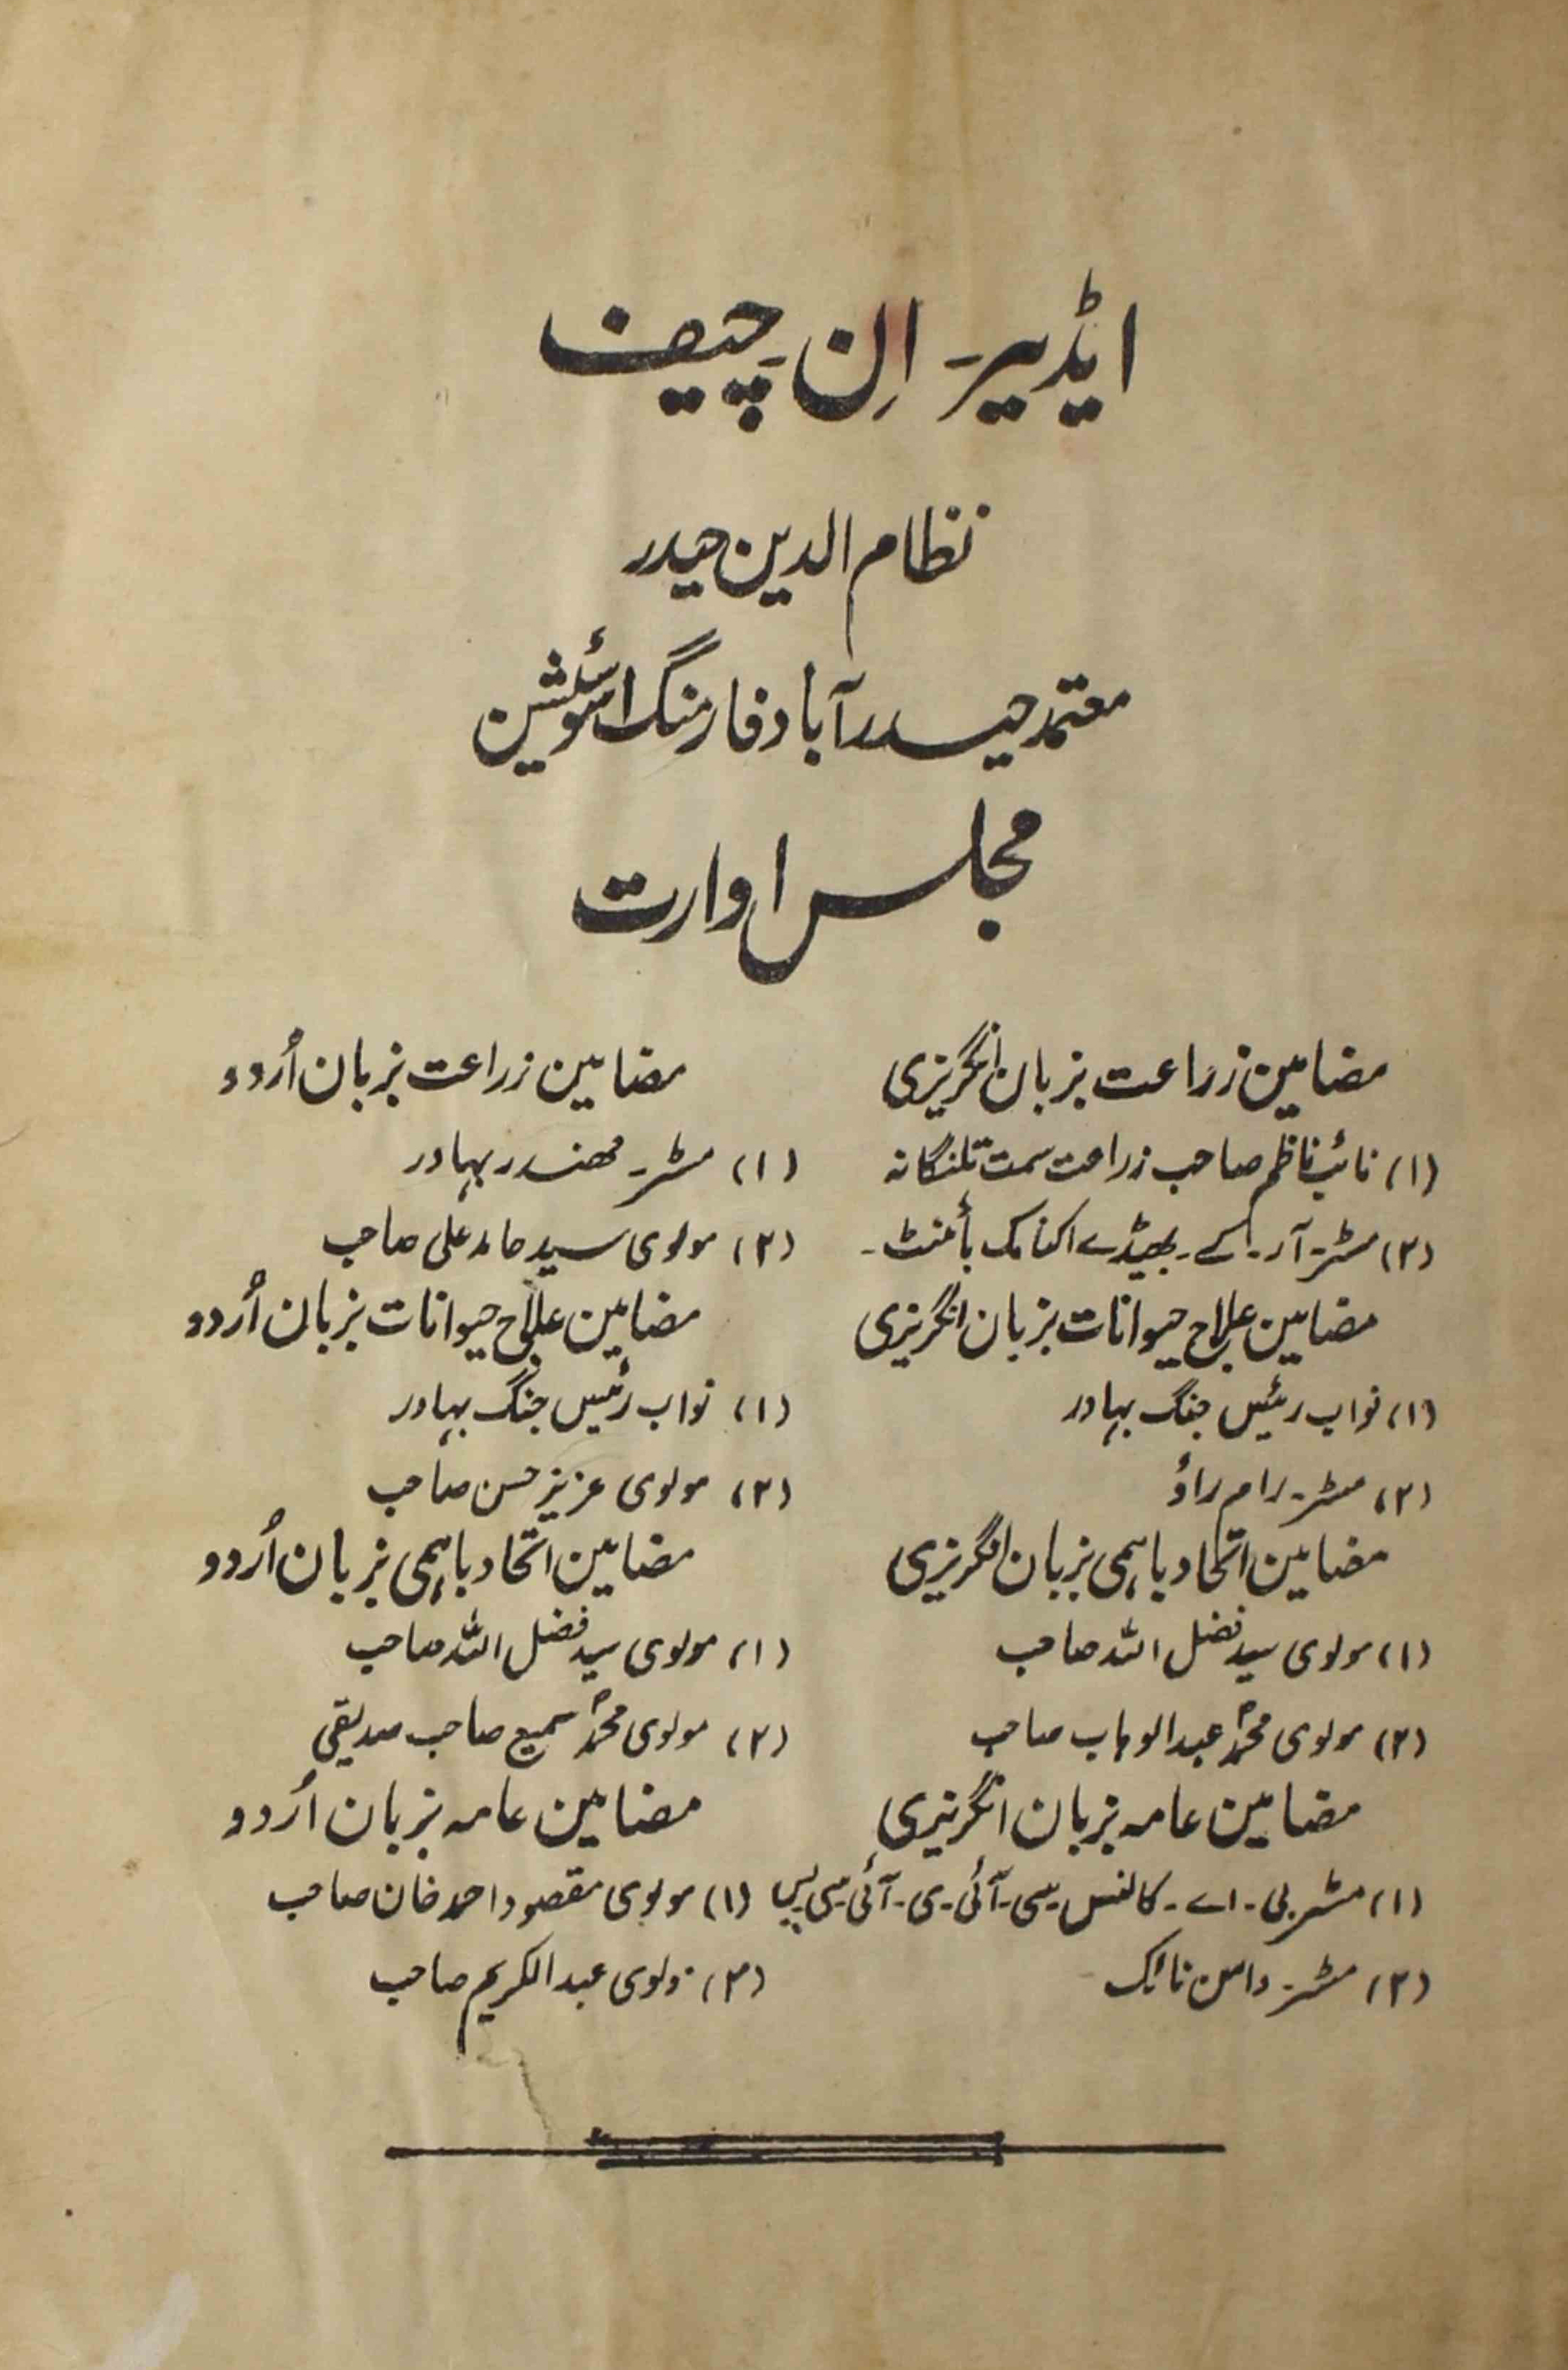 ایڈیٹر۔ اِن ۔ چیف
نظام الدین حیدر
معتمد حیدرآباد فارمنگ اسوسئیشن
مجلس ادارت
مضامین زراعت بزبان انگریزی
(۱) نائب ناظم صاحب زراعت سمت تلنگانہ
(۲) مسٹر۔ آر۔ کے۔ بھیڈے اکنامک باٹنسٹ۔
مضامین علاج حیوانات بزبان انگریزی
(۱) نواب رئیس جنگ بہادر
(۲) مسٹر۔ رام راؤ
مضامین اتحاد باہمی بزبان انگریزی
(۱) مولوی سید فضل اللہ صاحب
(۲) مولوی محمد عبدالوہاب صاحب
مضامین عامہ بزبان انگریزی
(۱) مسٹر بی۔ اے۔ کالنس سی۔ آئی۔ ی۔ آئی۔ سی۔ یس
(۲) مسٹر۔ وامن نائک
مضامین زراعت بزبان اُردو
(۱) مسٹر۔ مھندر بہادر
(۲) مولوی سید حامد علی صاحب
مضامین علاج حیوانات بزبان اُردو
(۱) نواب رئیس جنگ بہادر
(۲) مولوی عزیز حسن صاحب
مضامین اتحاد باہمی بزبان اُردو
(۱) مولوی سید فضل اللہ صاحب
(۲) مولوی محمد سمیع صاحب صدیقی
مضامین عامہ بزبان اُردو
(۱) مولوی مقصود احمد خان صاحب
(۲) مولوی عبدالکریم صاحب